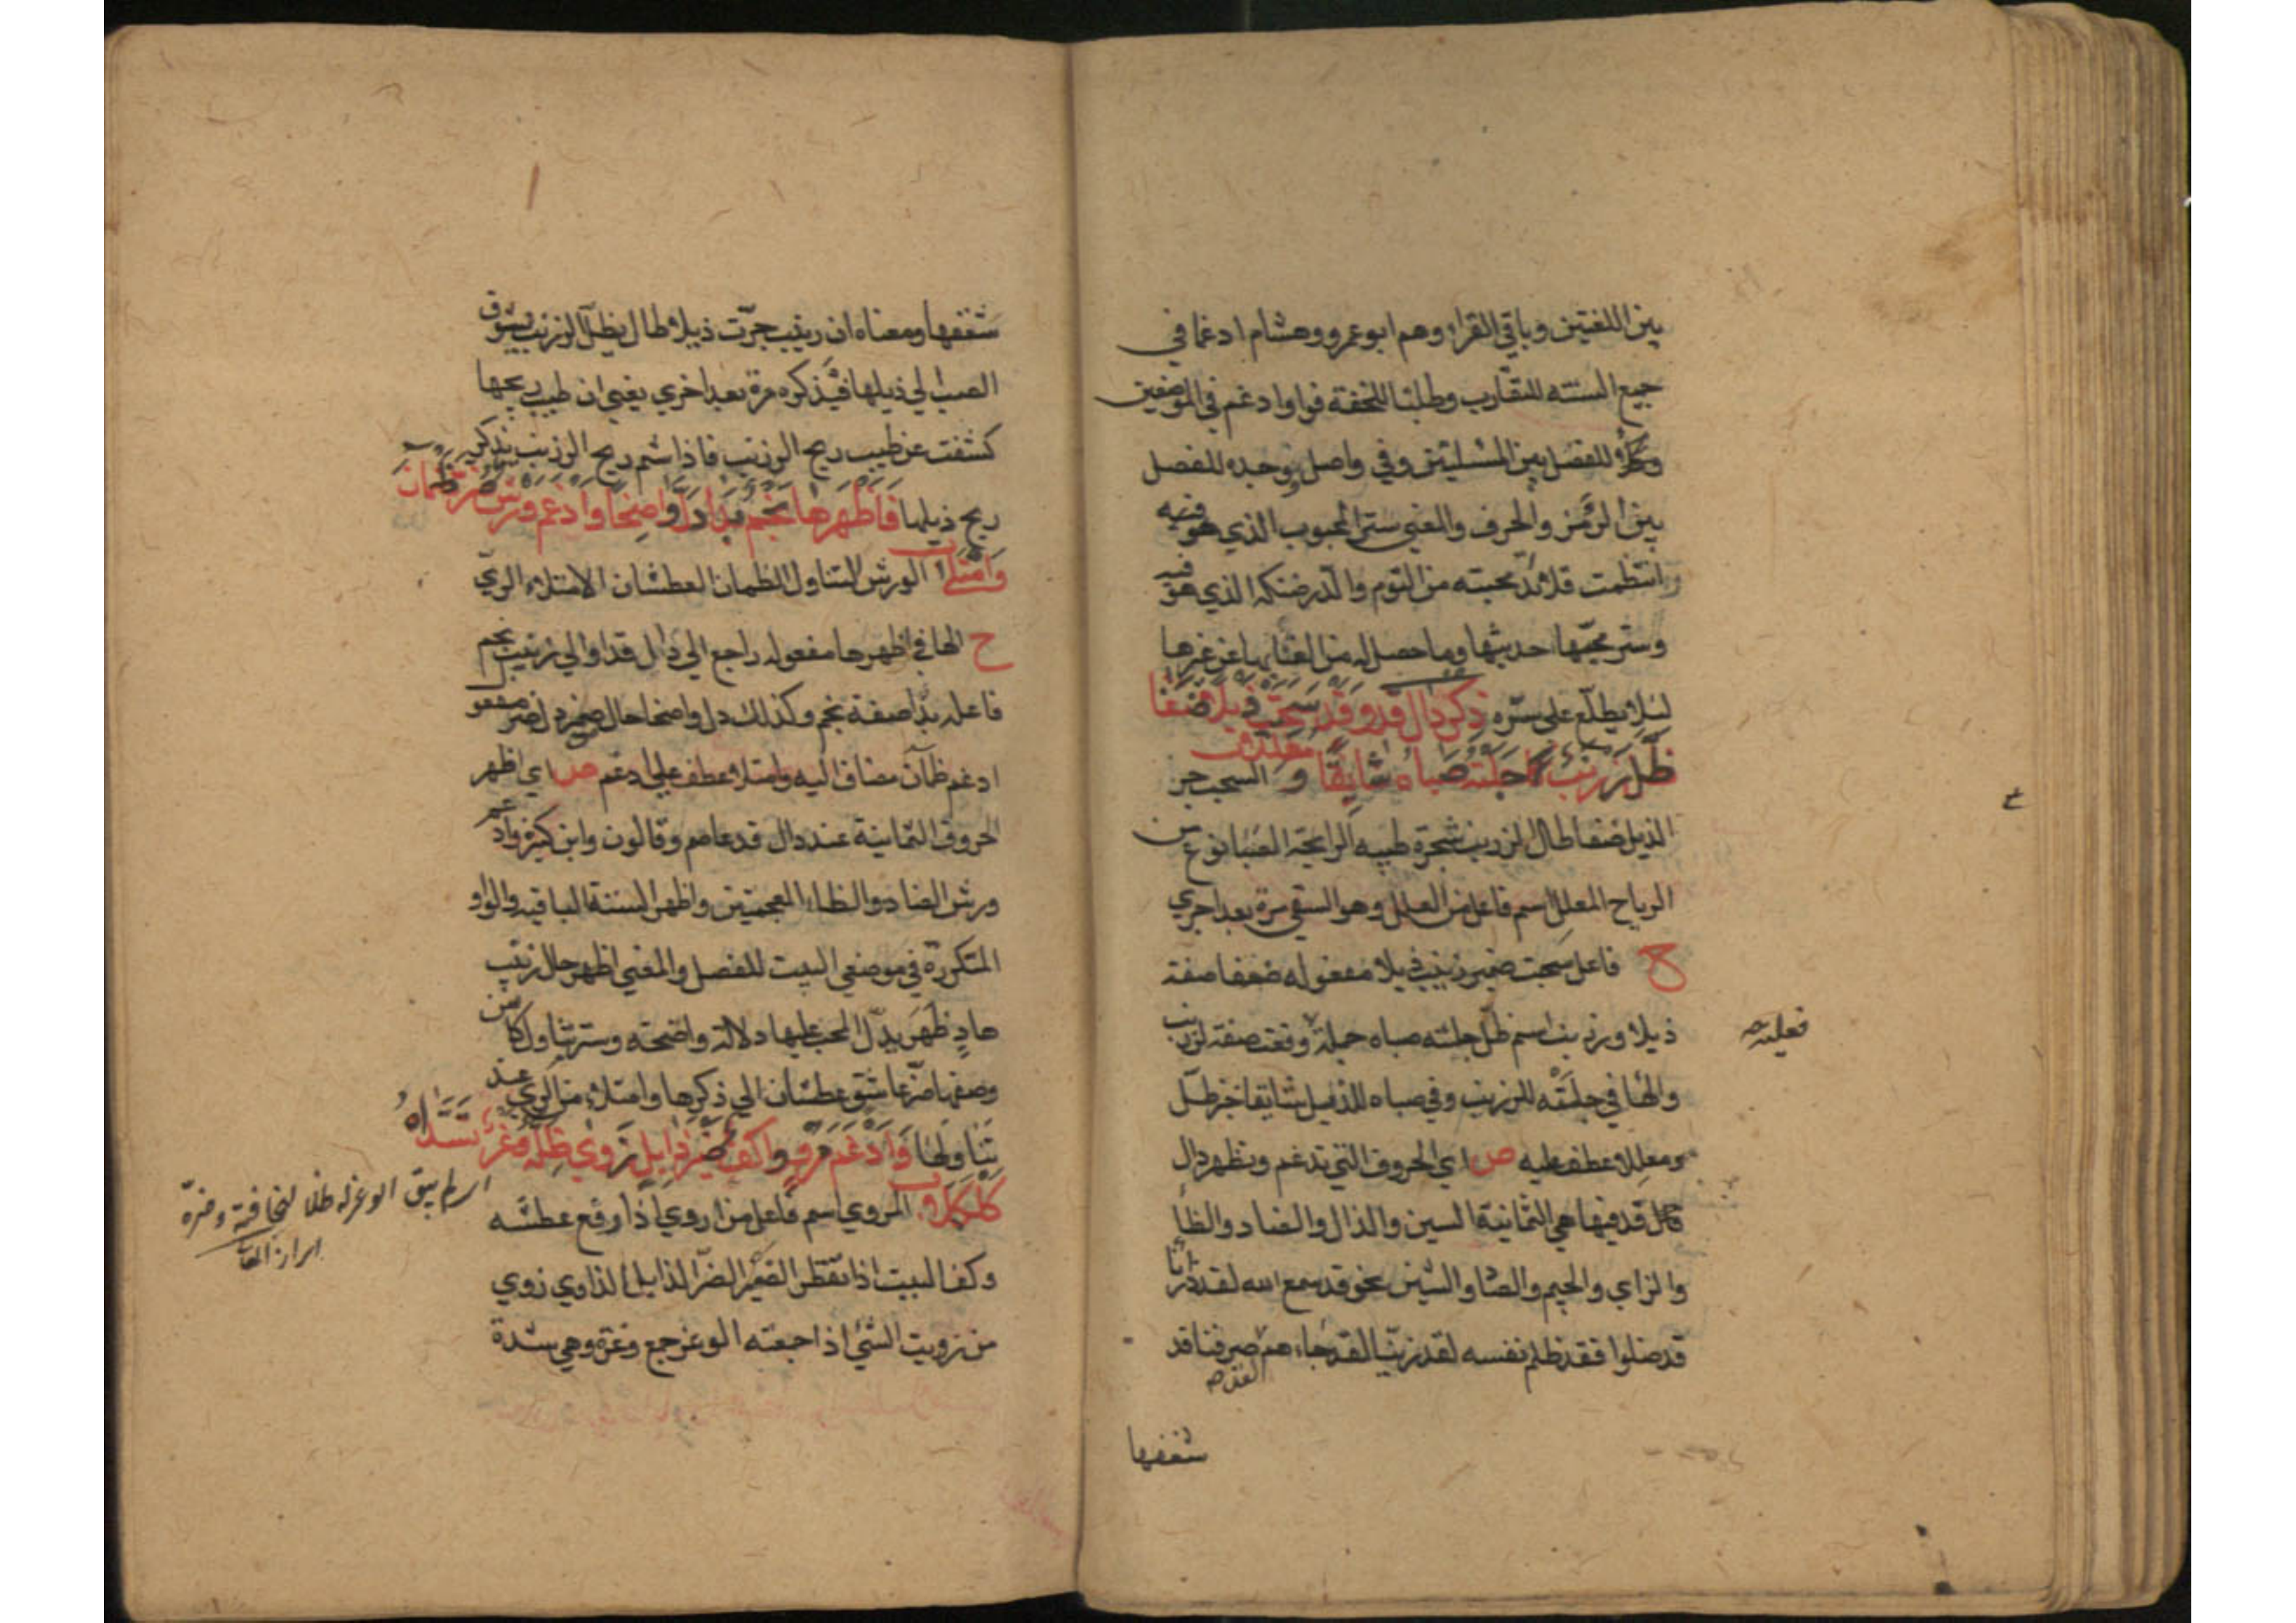 بين اللغتين وباقي القراء وهم ابو عمرو وهشام ادغما في
جميع الستته للتقارب وطلبا للخفة فواو ادغم في الموضعين
للفصل بين المسلتين وفي واصل وحده للفصل
بين الرمز والحرف والمعني ستر المحبوب الذي هو فيه
وانتظمت قلائد محبته من التوم والدر ضنكه الذي هو فيه
وستر محبها حديثها وما حصل له من العنا بها عن غيرها
ليلا يطلع علي سره ذكر دال قد وقد سحبت ذيلا ضفا
ظل زرنب جلته صباه شايقا ومعللا ب السحب جر
الذيل ضفا طال الزرنب شجرة طيبه الرايحة الصبا نوع من
الرياح المعلل اسم فاعل من العلل وهو السقي مرة بعد اخري
ح فاعل سحبت ضمير زينب ذيلا مفعوله ضفا صفة
ذيلا وزرنب اسم ظل جلته صباه جملة وقعت صفة لزرنب
فعليه صح
والها في جلته للزرنب وفي صباه للذيل شايقا خبر ظل
ومعللا عطف عليه ص اي الحروف التي تدغم وتظهر دال
قد فيها هي الثمانية السين والذال والضاد والظا
والزاي والجيم والصاد والشين نحو قد سمع الله لقد ذرانا
قد ضلوا فقد ظلم نفسه لقد زينا لقد جاءهم صرفنا قد
لقد صح
شغفها
شغفها ومعناه ان زينب جرت ذيلا طال يظل الزرنب يشوق
الصب الي ذيلها فيذكره مرة بعد اخري يعني ان طيب ريحها
كشفت عن طيب ريح الزرنب فاذا شم ريح الزرنب يتذكر
ريح ذيلها فاظهرها نجم بدا دل واضحا وادغم ورش ضر ظمآن
وامتلا ب الورش التناول الظمان العطشان الامتلاء الري
ح الها في اظهرها مفعوله راجع الي دال قد او الي زينب نجم
فاعله بدا صفة نجم وكذلك دل واضحا حال ضمير دل ضر مفعول
ادغم ظمآن مضاف اليه وامتلا عطف علي ادغم ص اي اظهر
الحروف الثمانية عند دال قد عاصم وقالون وابن كثير وادغم
ورش الضاد والظاء المعجمتين واظهر الستة الباقيه والواو
المتكررة في موضعي البيت للفصل والمعني اظهر حال زينب
هاد ظهر يدل المحب عليها دلالة واضحته وستر تناول كاس
وصفها ضر عاشق عطشان الي ذكرها وامتلاء من الري عند
تناولها وادغم مرو واكف ضير ذابل زوي ظله وغر تسداه
كلكلا ب المروي اسم فاعل من اروي اذا رفع عطشه
وكف البيت اذا تقطر الضير الضر الذابل الذاوي زوي
من زويت الشي اذا جمعته الوغر جمع وغرة وهي شدة